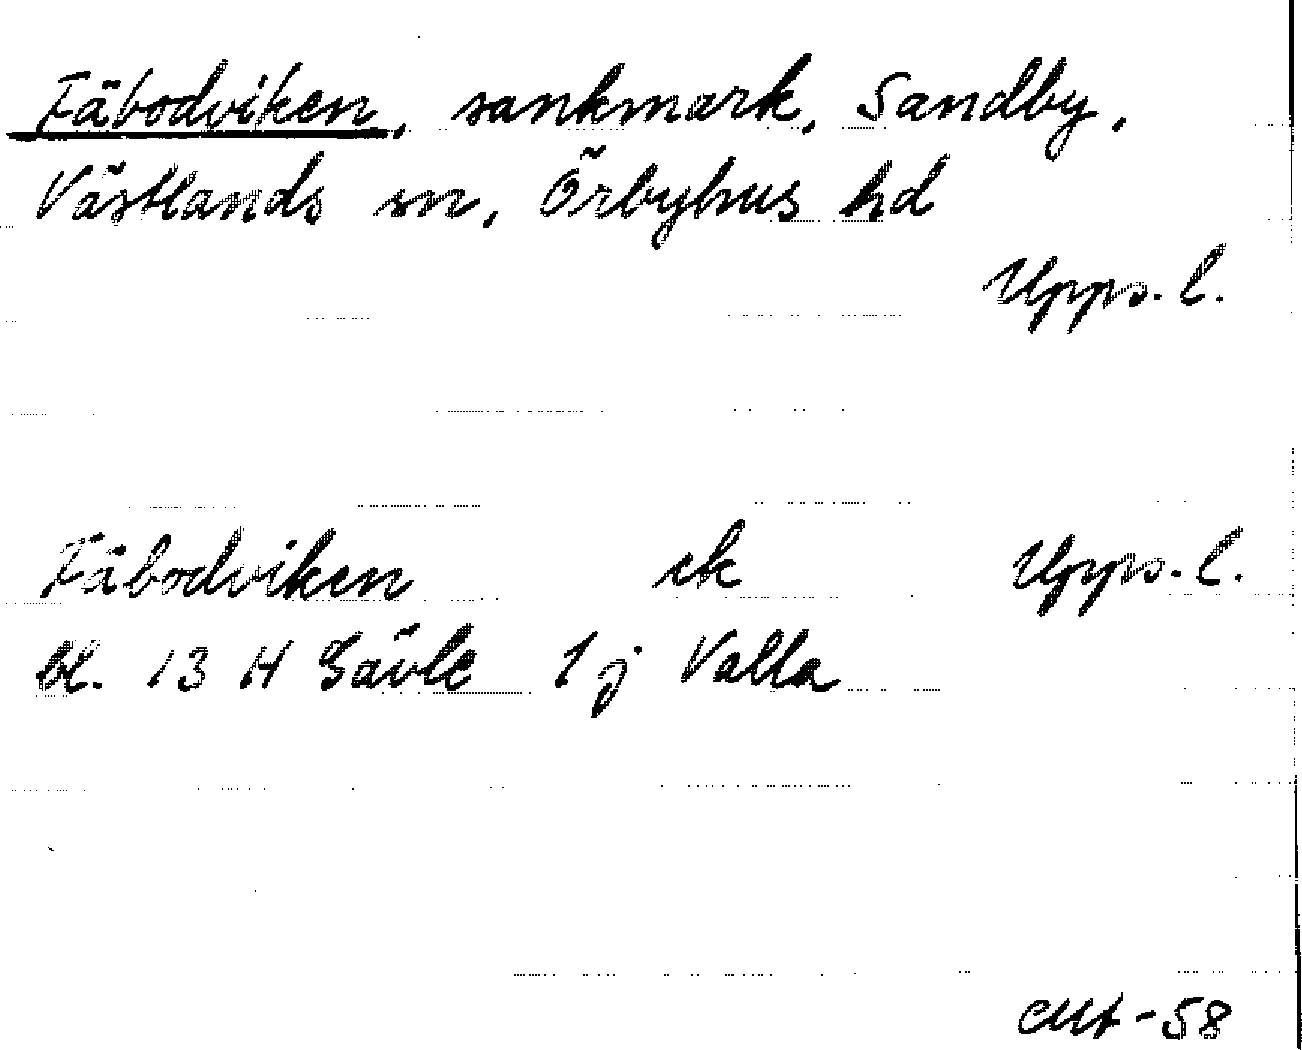 Fäbodviken, sankmark, Sandby,
Västlands sn, Örbyhus hd
Upps. l.
Fäbodviken ek Upps. l.
bl. 13 H Gävle 1 j Valla
-58